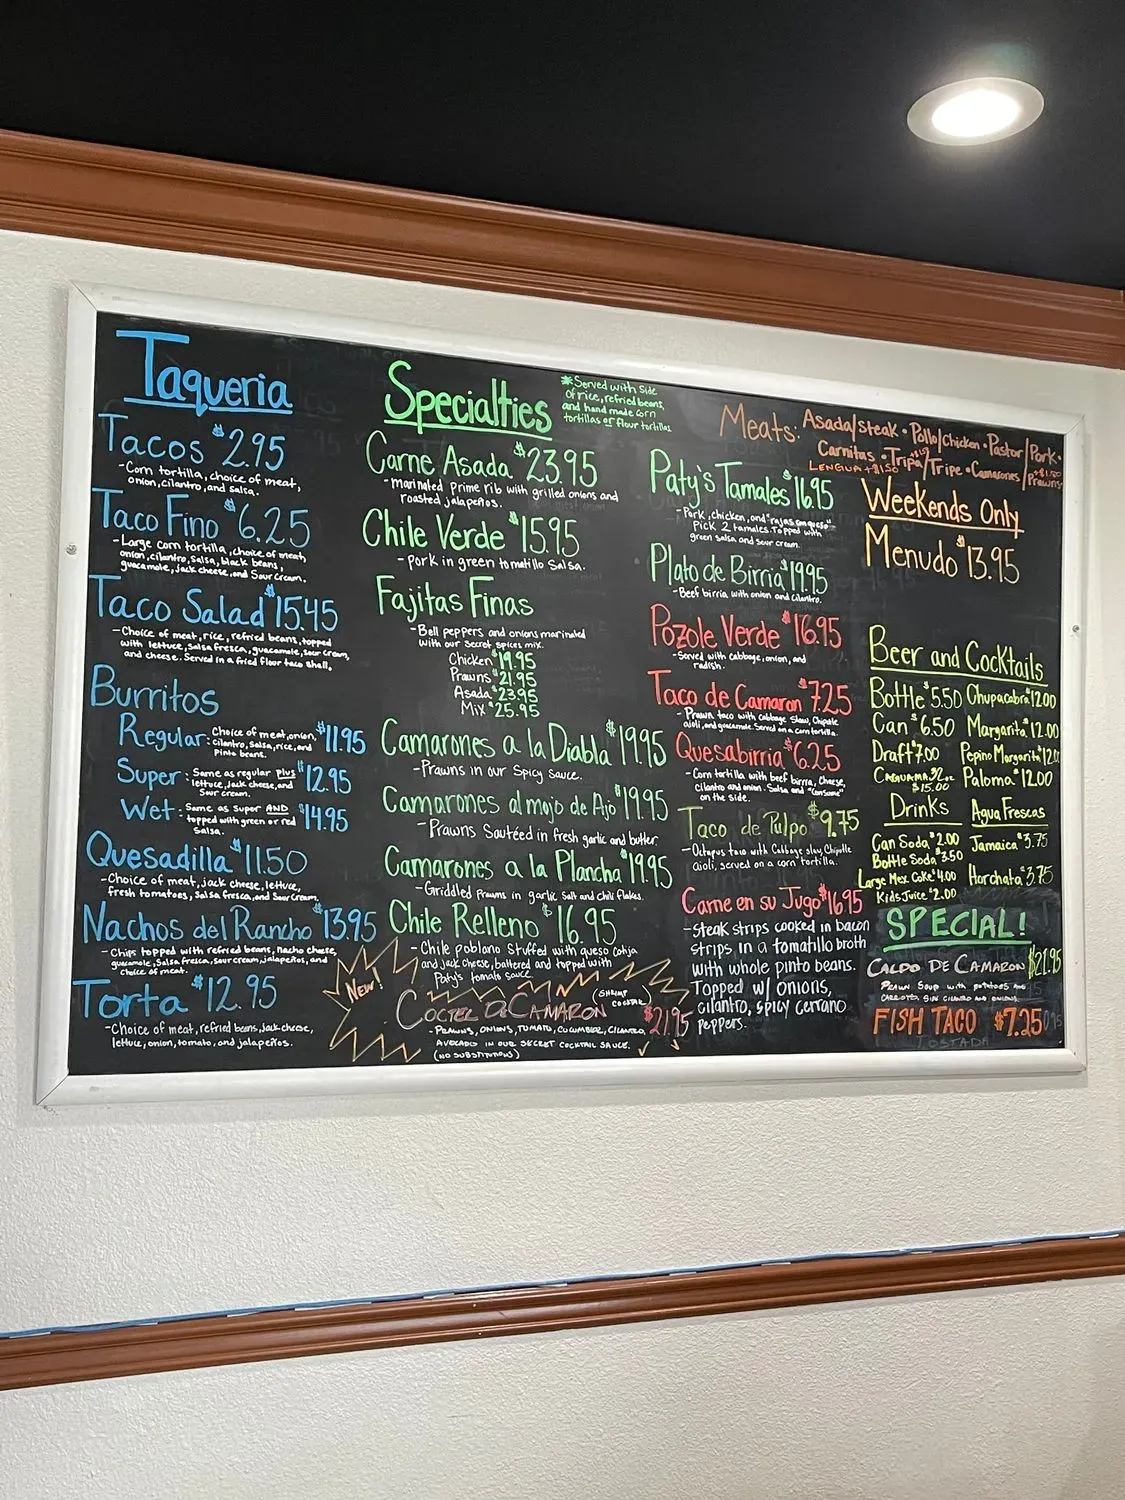 Taqueria
Tacos $2.95
-Corn tortilla, choice of meat,
onion, cilantro, and salsa.
Taco Fino $6.25
-Large corn tortilla, choice of meat,
onion, cilantro, salsa, black beans,
guacamole, jack cheese, and Sour Cream.
Taco Salad $15.45
-Choice of meat, rice, refried beans, topped
with lettuce, salsa fresca, guacamole, sour cream,
and cheese. Served in a fried flour taco shell.
Burritos
Regular: Choice of meat, onion,
cilantro, salsa, rice, and
Pinto beans.
$11.95
Super: Same as regular plus
lettuce, jack cheese, and
Sour cream.
$12.95
Wet: Same as Super AND
topped with green or red
Salsa.
$14.95
Quesadilla $11.50
-Choice of meat, jack cheese, lettuce,
fresh tomatoes, Salsa fresca, and Sour Cream.
Nachos del Rancho $13.95
-Chips topped with refried beans, Nacho cheese,
guacamole, Salsa fresca, sour cream, jalapeños, and
choice of meat.
Torta $12.95
-Choice of meat, refried beans, jack cheese,
lettuce, onion, tomato, and jalapeños.
Specialties
*Served with side
of rice, refried beans,
and hand made corn
tortillas or flour tortillas
Carne Asada $23.95
-marinated Prime rib with grilled onions and
roasted jalapeños.
Chile Verde $15.95
-pork in green tomatillo Salsa.
Fajitas Finas
-Bell peppers and onions marinated
with our secret spices mix.
Chicken $19.95
Prawns $21.95
Asada $23.95
Mix $25.95
Camarones a la Diabla $19.95
-Prawns in our Spicy sauce.
Camarones al mojo de Ajo $19.95
-Prawns Sautéed in fresh garlic and butter.
Camarones a la Plancha $19.95
-Griddled Prawns in garlic Salt and chili flakes.
Chile Relleno $16.95
-Chile poblano stuffed with queso Cotija
and jack Cheese, battered and topped with
Paty's tomato sauce
NEW!
COCTEL DE CAMARON (SHRIMP
COCKTAIL)
$21.95
-PRAWNS, ONIONS, TOMATO, CUCUMBER, CILANTRO,
AVOCADO IN OUR SECRET COCKTAIL SAUCE.
(NO SUBSTITUTIONS)
Meats: Asada/steak • Pollo/Chicken • Pastor/Pork •
Carnitas • Tripa/Tripe • Camarones/Prawns
LENGUA +$1.50
+$1.50
Paty's Tamales $16.95
-Pork, chicken, and "rajas con queso"
Pick 2 tamales. Topped with
green salsa and sour cream.
Plato de Birria $19.95
-Beef birria with onion and cilantro.
Pozole Verde $16.95
-Served with cabbage, onion, and
radish.
Taco de Camaron $7.25
-Prawn taco with Cabbage Slaw, Chipotle
aioli, and guacamole. Served on a corn tortilla.
Quesabirria $6.25
-Corn tortilla with beef birria, Cheese,
cilantro and onion. Salsa and "Consome"
on the side.
Taco de Pulpo $9.75
-Octopus taco with Cabbage slaw, Chipotle
aioli, served on a corn tortilla.
Carne en su Jugo $16.95
-steak strips cooked in bacon
strips, in a tomatillo broth
with whole pinto beans.
Topped w/ onions,
cilantro, spicy serrano
peppers.
Weekends Only
Menudo $13.95
Beer and Cocktails
Bottle $5.50
Can $6.50
Draft $7.00
CAGUAMA 32oz
$15.00
Chupacabra $12.00
Margarita $12.00
Pepino Margarita $12.00
Paloma $12.00
Drinks
Can Soda $2.00
Bottle Soda $3.50
Large Mex. Coke $4.00
Kids Juice $2.00
Agua Frescas
Jamaica $3.75
Horchata $3.75
SPECIAL!
CALDO DE CAMARON $21.95
PRAWN SOUP WITH POTATOES AND
CARROTS, SIDE CILANTRO AND ONIONS.
FISH TACO $7.25
TOSTADA